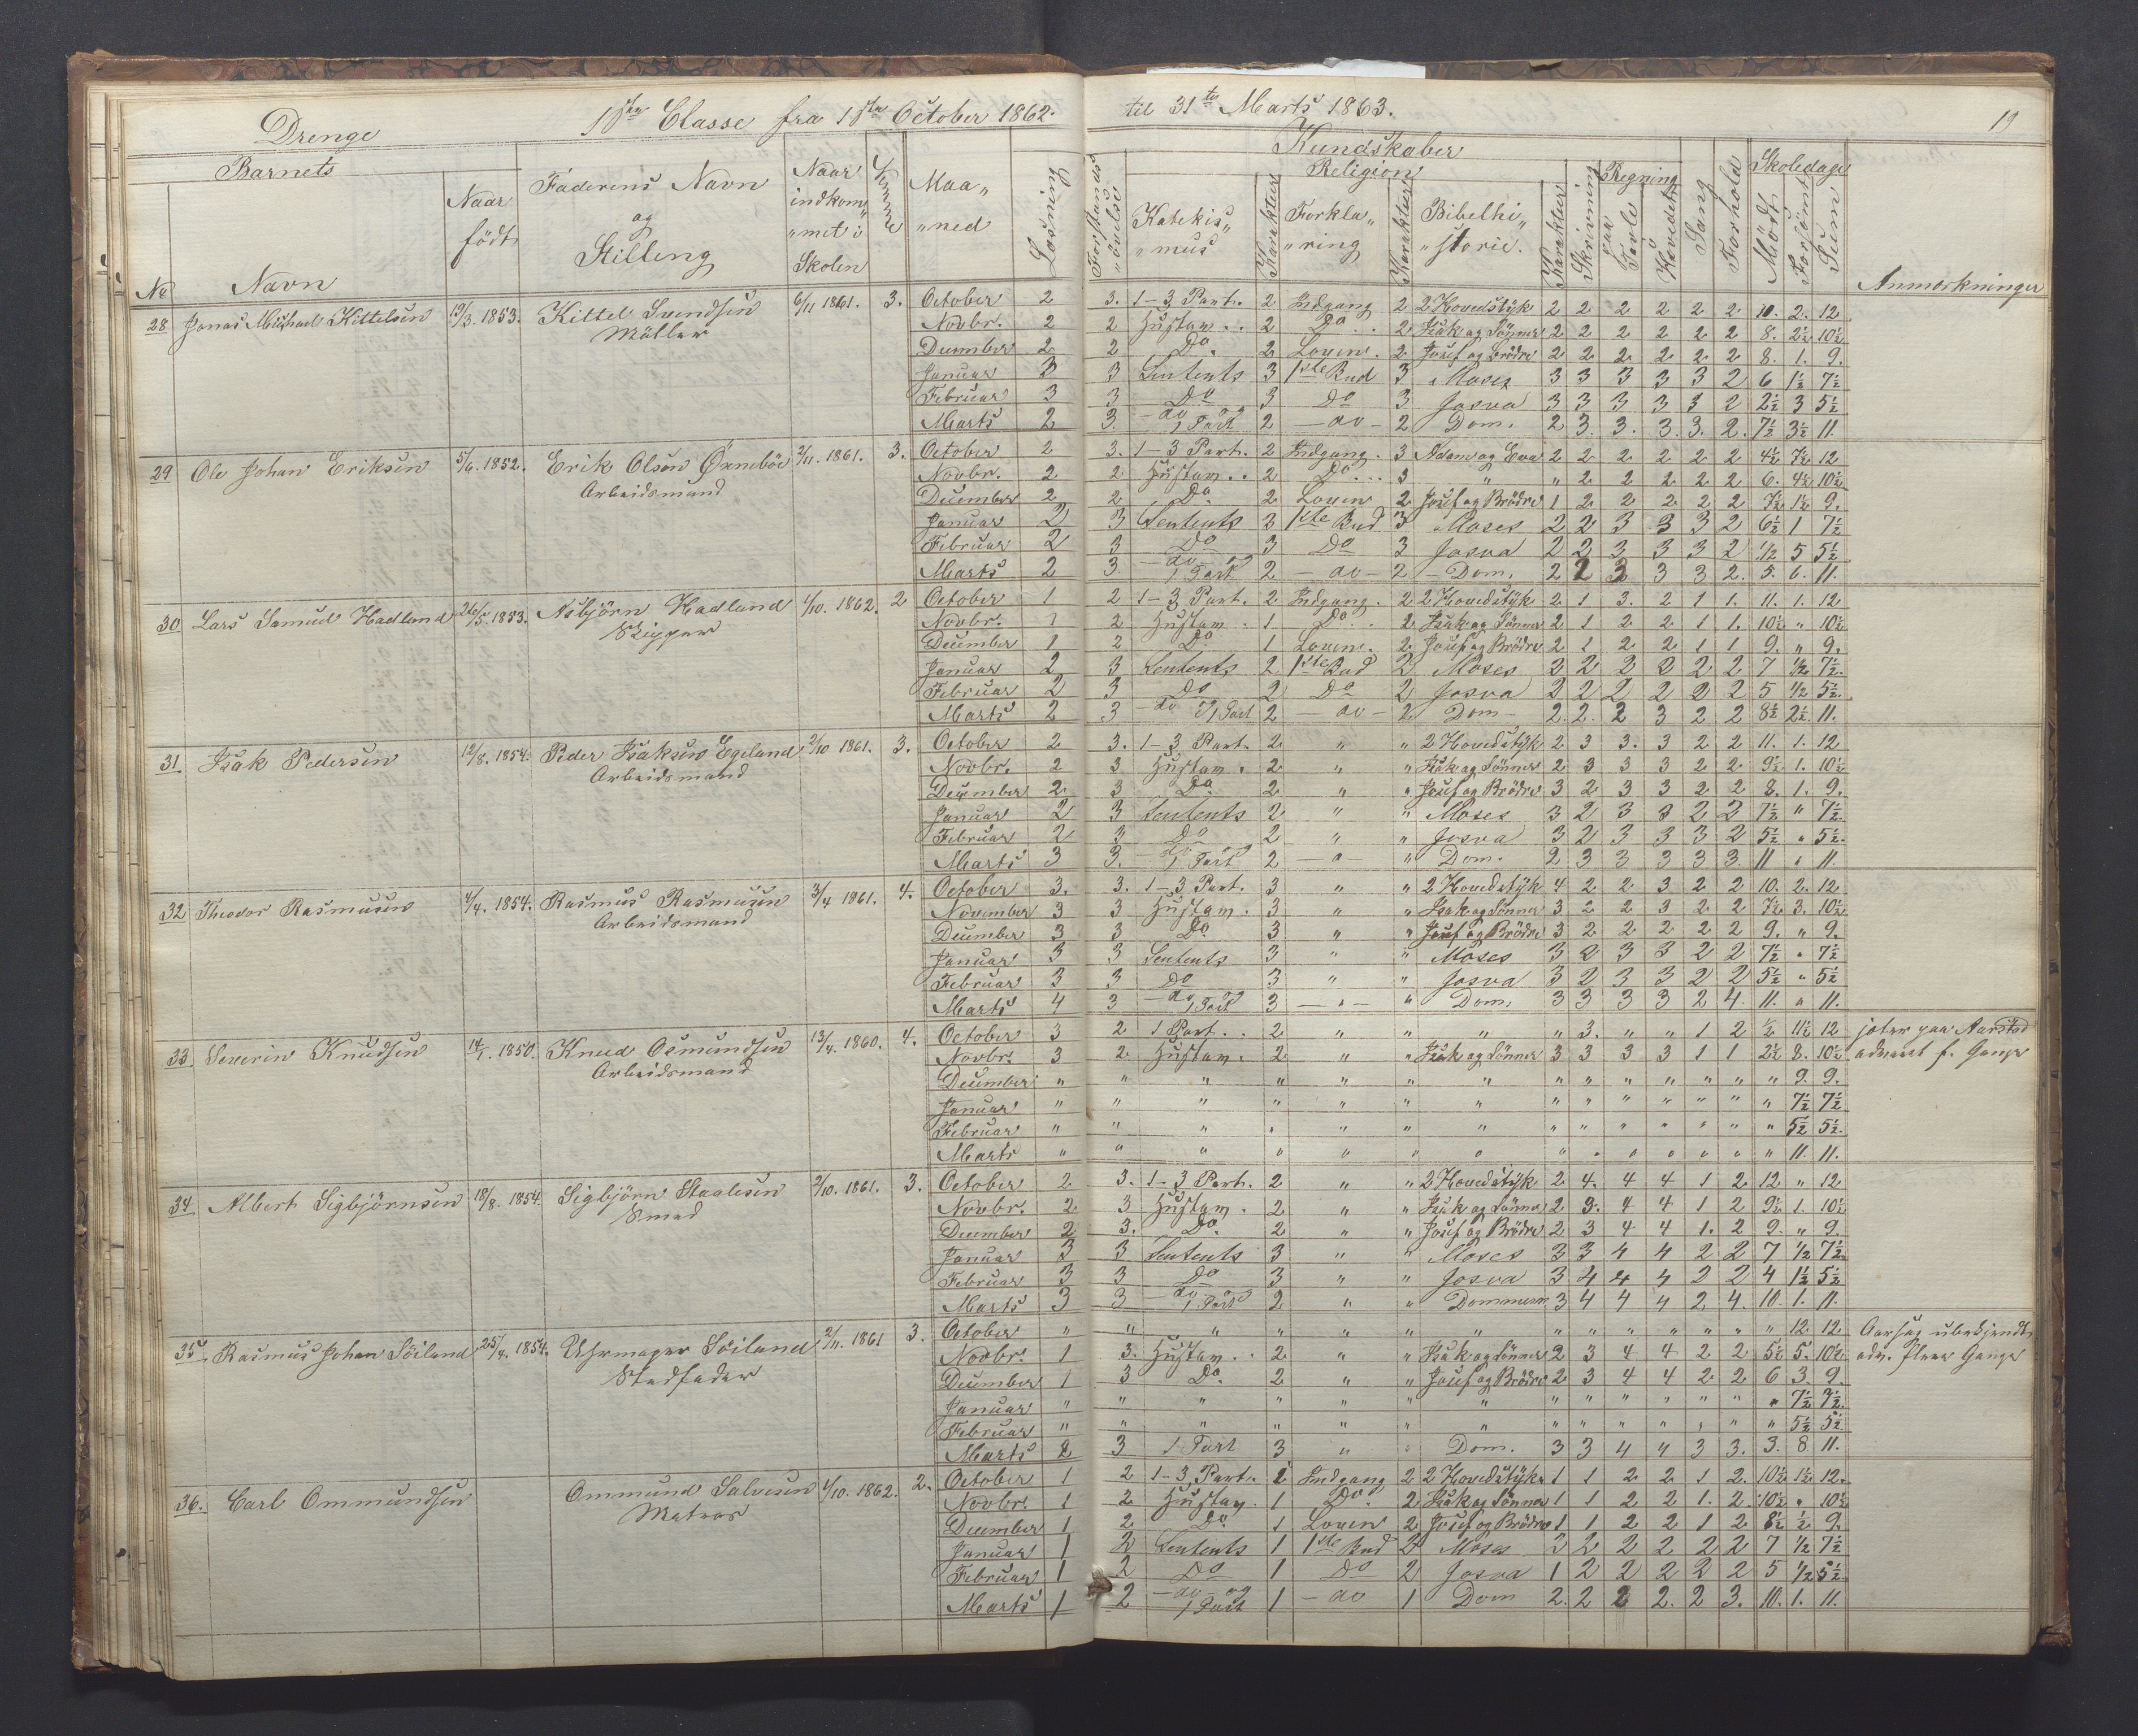 Drenge 1ste Classe fra 1ste October 1862. til 31te Marts 1863. 19
Barnets Faderens Navn og Stilling Naar indkom„ „met i Skolen Maa„ „ned Læsning Forstands „övelse Kundskaber Skoledage
No Navn Naar født Religion Katekis„ „mus Karakteer Forkla„ „ring Karakteer Bibelhi„ „storie. Karakteer Skrivning Regning paa Tavle Hovedet Sang Forhold Mödt Forsömt Sum Anmærkninger
28 Jonas Michael Kittelsen 19/3. 1853. Kittel Svendsen 6/11 1861. 3. October 2 3. 1-3 Part. 2 Indgang 2 2 Hovedstÿk 2 2 2 2 2 2 10. 2. 12
Möller Novbr. 2 2 Hustavn.. 2 Do.. 2 Isak og Sönner 2 2 2 2 2 2 8. 2½ 10½
December 2 2 Do. 2 Loven. 2 Josef og Brödre 2 2 2 2 2 2 8. 1. 9.
Januar 3 3 Sentents 3 1ste Bud 3 Moses 3 3 3 3 3 2 6 1½ 7½
Februar 3 3 Do 3 Do 3 Josva 3 3 3 3 3 2 2½ 3 5½
Marts 2 3. -do og 1 Part 2 -do- 2 Dom. 2 3. 3. 3. 3. 2. 7½ 3½ 11.
29 Ole Johan Eriksen 5/6. 1852. Erik Olsen Ørneböe 2/11. 1861. 3. October 2 3. 1-3 Part. 2 Indgang. 3 Adam og Eva 2 2 2 2 2 2 4½ 7½ 12
Arbeidsmand Novbr. 2 2 Hustavn.. 2 Do... 3 " " 2 2 2 2 2 6. 4½ 10½
December 2 2 Do. 2 Loven 2 Josef og Brödre 1 2 2 2 2 2 7½ 1½ 9.
Januar 2 3 Sentents 3 1ste Bud 3 Moses 2 2 3 3 3 2 6½ 1 7½
Februar 2 3 Do 3 Do 3 Josva 2 2 3 3 3 2 ½ 5 5½
Marts 2 3 -do og 1 Part 2 -do- 2 -Dom. 2 2 3 3 3 2. 5. 6. 11.
30 Lars Samuel Hadland 26/5. 1853. Asbjörn Hadland 1/10. 1862. 2 October 1 2 1-3 Part. 2 Indgang. 2 2 Hovedstÿk 2 1 3. 2 1 1. 11. 1. 12
Skipper Novbr. 1 2 Hustavn. 1 Do.. 2 Isak og Sönner 2 1 2 2 1 1. 10½ " 10½
December 1 2 Do 1 Loven. 2 Josef og Brödre 2 1 2 2 1 1 9. " 9.
Januar 2 3 Sentents 2 1ste Bud 2 Moses 2 2 2 2 2 2 7 ½ 7½
Februar 2 3 Do 2 Do 2 Josva 2 2 2 2 2 2 5 ½ 5½
Marts 2 3 -do og 1 Part 2 -do- 2 Dom- 2. 2. 2 3 2 2 8½ 2½ 11.
31 Isak Pedersen 12/8. 1854. Peder Isaksen Egeland 2/10 1861. 3. October 2 3. 1-3 Part. 2 " " 2 Hovedstÿk 2 3 3. 3 2 2 11. 1. 12
Arbeidsmand Novbr. 2 3 Hustavn. 2 " " Isak og Sönner 2 3 3 3 2 2 9½ 1. 10½
December 2 3 Do. 2 " " Josef og Brödre 3 2 3 3 2 2 8. 1. 9.
Januar 2 3 Sentents 2 " " Moses 3 2 3 3 2 2 7½ " 7½
Februar 2 3 Do 2 " " Josva 3 2 3 3 3 2 5½ " 5½
Marts 3 3. -do og 1 Part 2 -"- " Dom. 2 3 3 3 3 3. 11 " 11.
32 Theodor Rasmusen 4/4. 1854. Rasmus Rasmusen 3/4 1861. 4. October 3. 3. 1-3 Part. 3 " " 2 Hovedstÿk 4 2 2 3 2 2 10. 2. 12
Arbeidsmand November 3 3 Hustavn. 3 " " Isak og Sönner 3 2 2 3 2 2 7½ 3. 10½
December 3 3 Do. 3 " " Josef og Brödre 3 2 2 2 2 2 9. " 9.
Januar 3 3 Sentents 3 " " Moses 3 2 3 3 2 2 7½ " 7½
Februar 3 3 Do 3 " " Josva 3 2 3 3 2 2 5½ " 5½
Marts 4 3 -do og 1 Part 3 -"- " Dom. 3 3 3 3 2 4. 11. " 11.
33 Severin Knudsen 14/1. 1850. Knud Osmundsen 13/4. 1860. 4. October 3 2 1 Part.. 2 " " " " 3. " " 1 2 ½ 11½ 12 jeter paa Aarstad
Arbeidsmand Novbr. 3 2. Hustavn. 2 " " Isak og Sönner 3 3 3 3 1 1 2½ 8. 10½ advaret f. Gange
December " " " " " " " " " " " " " " 9. 9.
Januar " " " " " " " " " " " " " " 7½ 7½
Februar " " " " " " " " " " " " " " 5½ 5½
Marts " " " " " " " " " " " " " " 11. 11.
34 Albert Sigbjörnsen 18/8. 1854. Sigbjörn Staalesen 2/10. 1861. 3. October 2 3. 1-3 Part. 2 " " 2 Hovedstÿk 2 4. 4 4 1 2 12 " 12
Smed Novbr. 2 3 Hustavn. 2 " " Isak og Sönner 2 3. 4 4 1 2 9½ 1. 10½
December 2 3. Do. 2 " " Josef og Brödre 2 3 4 4 1. 2 9. " 9.
Januar 3 3 Sentents 3 " " Moses 3 3 4 4 2 2 7 ½ 7½
Februar 3 3 Do 3 " " Josva 3 4 4 4 2 2 4 1½ 5½
Marts 3 3 -do og 1 Part 2 " " Dommern 3 4 4 4 2 4. 10. 1. 11.
35 Rasmus Johan Söiland 25/4. 1854. Uhrmager Söiland 2/11. 1861 3. October " " " " " " " " " " " " " " 12. 12. Aarsag ubekjendt
Stedfader Novbr. 1 3. Hustavn.. 2 " " Isak og Sönner 2 3 4 4 2 2 5½ 5. 10½ adv. flere Gange
December 1 3 Do. 2 " " Josef og Brödre 2 3 4 4 2 2 6 3. 9.
Januar " " " " " " " " " " " " " " 7½ 7½
Februar " " " " " " " " " " " " " " 5½ 5½
Marts 2 3 1 Part 3 " " Dom. 3 3 4 4 3 3. 3. 8 11.
36. Carl Ommundsen Ommund Salvesen 1/10. 1862. 2. October 1 2 1-3 Part. 2 Indgang 2 2 Hovedstÿk 1 1 2 2 1 2. 10½ 1½ 12.
Matros Novbr. 1 2 Hustavn. 1 Do. 2 Isak og Sönner 1 1 2 2 1. 2. 10½ " 10½
December 1 2 Do. 1 Loven 2 Josef og Brödre 1 1 2 2 1 2 8½ ½ 9.
Januar 1 2 Sentents 1 1ste Bud 2 Moses 2 2 2 2 2 2 7 ½ 7½
Februar 1 2 Do 1 Do 2 Josva 1 2 2 2 2 2 5 ½ 5½
Marts 1 2 -do og 1 Part 1 -do 1 Dom 2. 2 2 2. 2 3. 10. 1. 11.